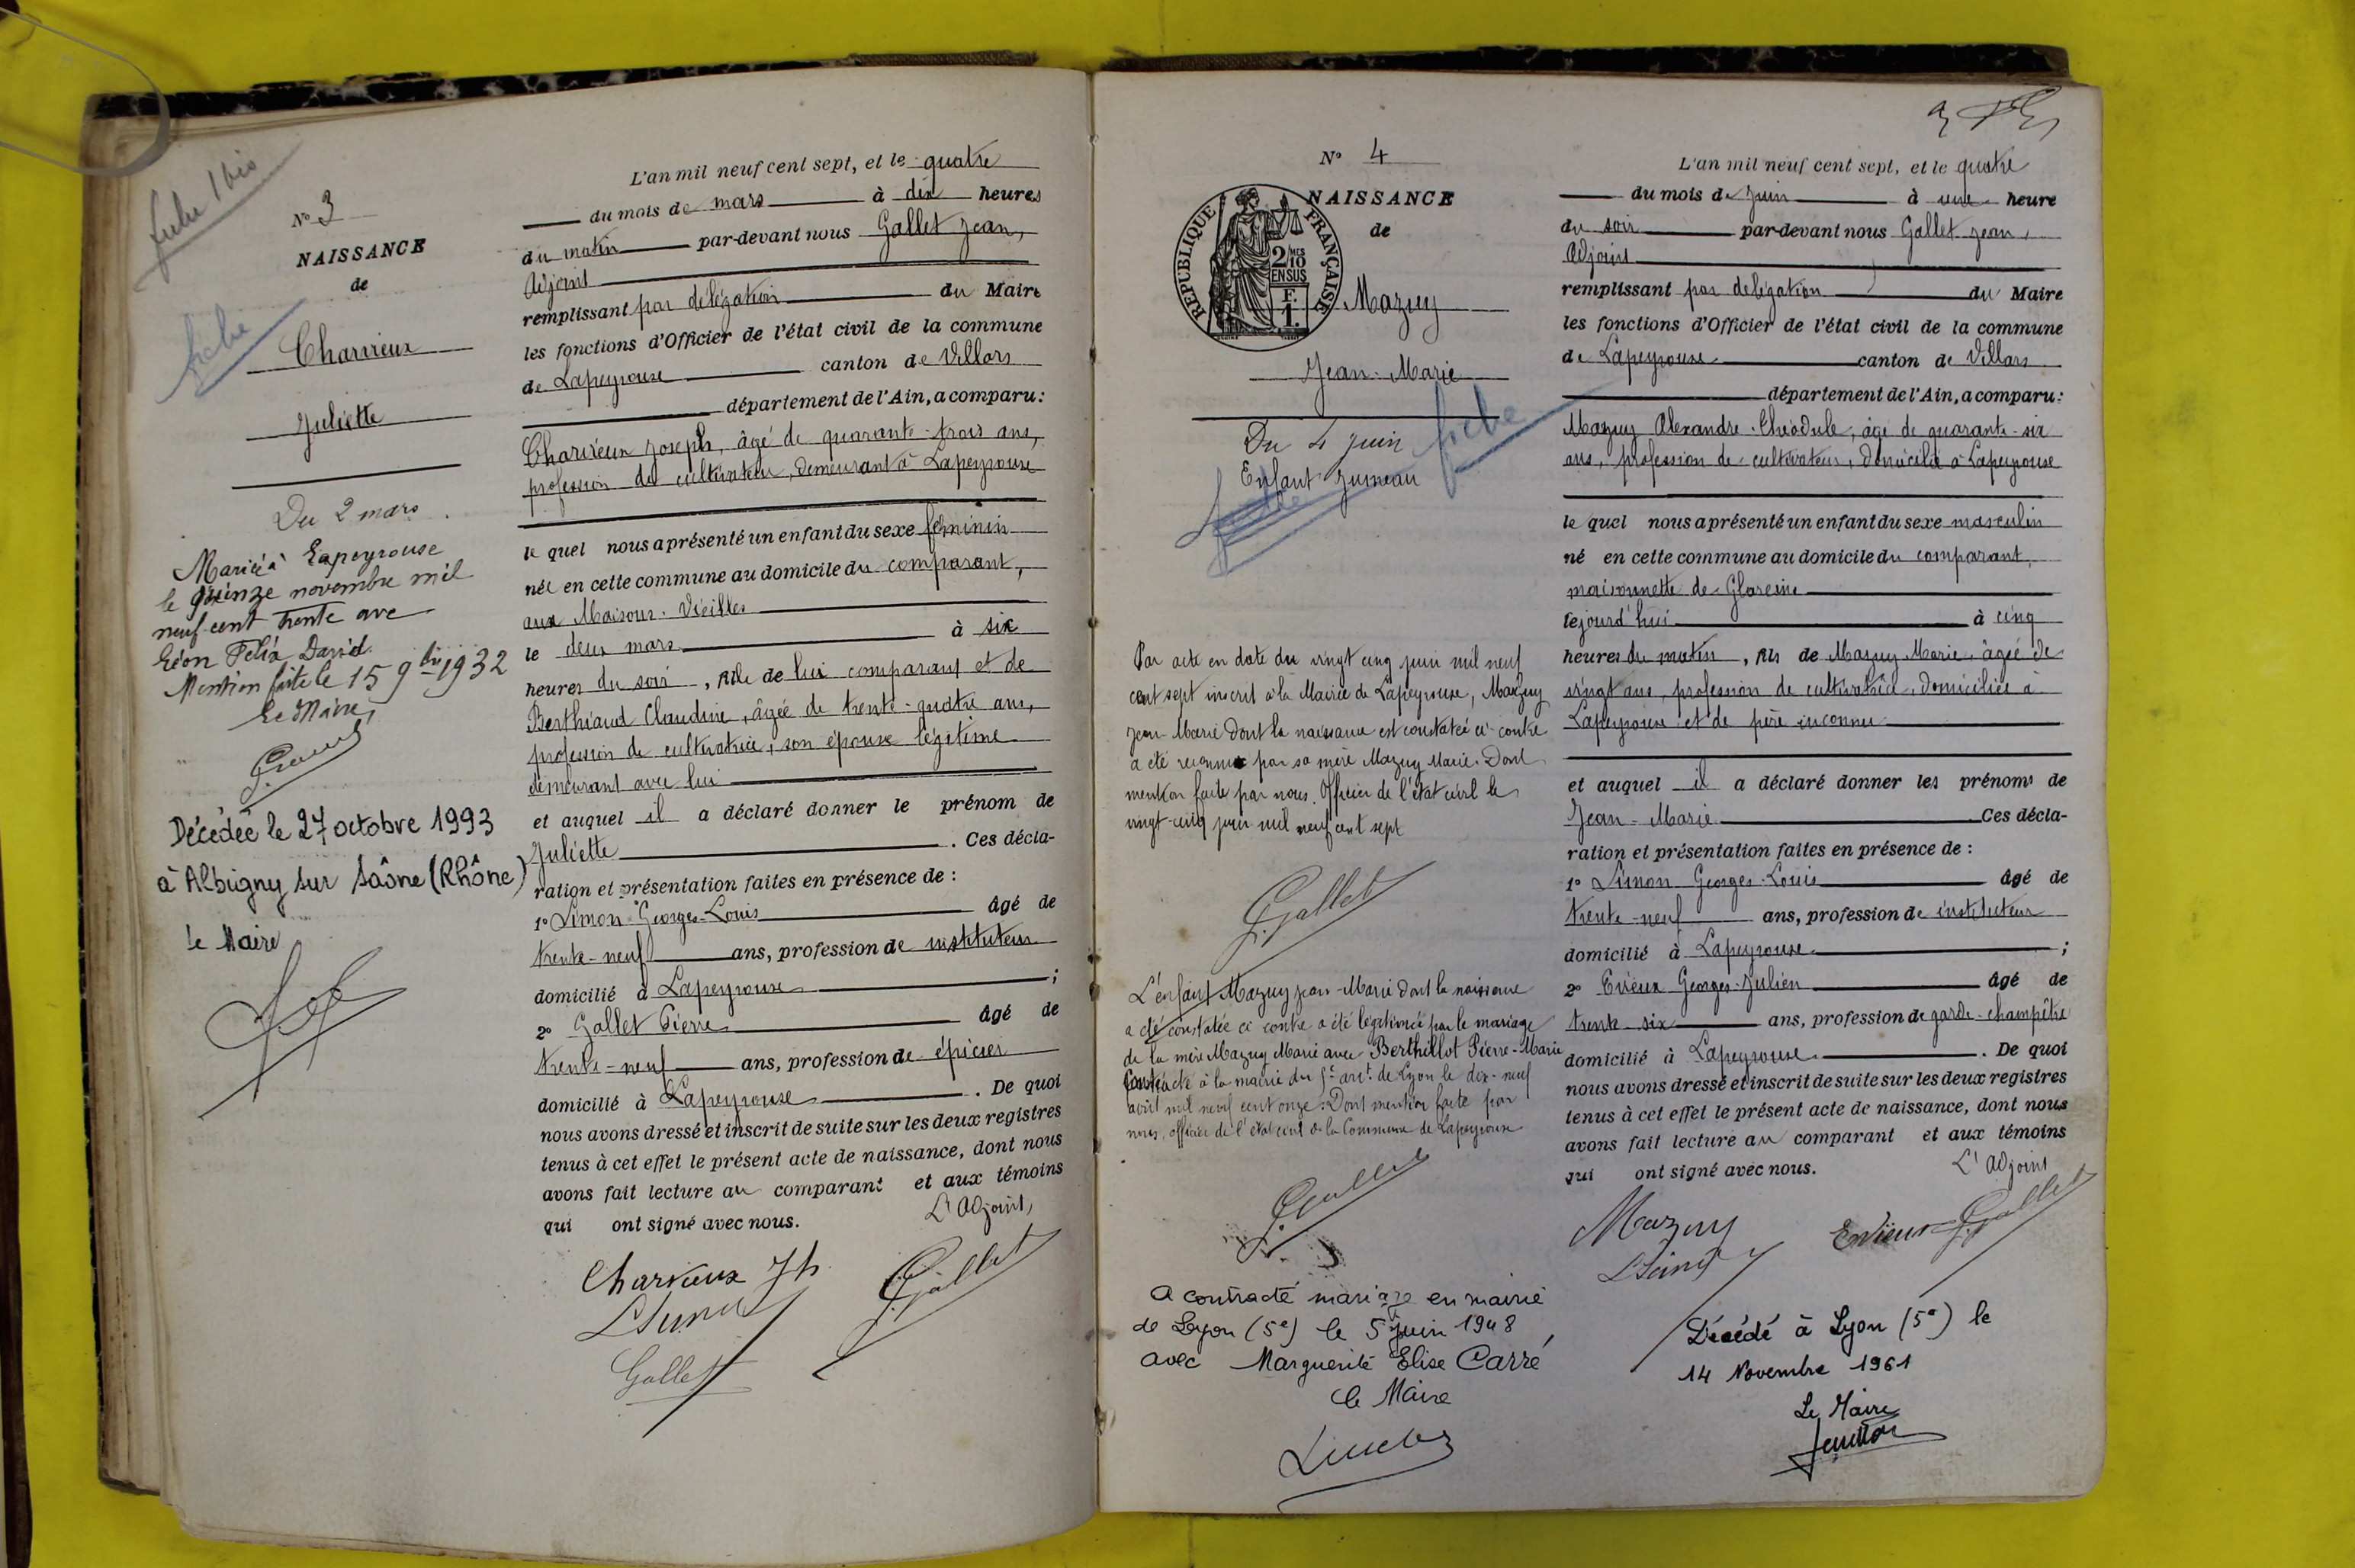 fiche 1 bis
N° 3
NAISSANCE
de
fiche
Charvieux
Juliette
Du 2 mars
Mariée à Lapeyrouse
le quinze novembre mil
neuf cent trente avec
Léon Félix David.
Mention faite le 15 9bre 1932
Le Maire,
Décédée le 27 octobre 1993
à Albigny sur Saône (Rhône)
le Maire
L'an mil neuf cent sept, et le quatre
du mois de mars à dix heures
du matin par-devant nous Gallet Jean,
Adjoint
remplissant par délégation du Maire
les fonctions d'Officier de l'état civil de la commune
de Lapeyrouse canton de Villars
département de l'Ain, a comparu:
Charvieux Joseph, âgé de quarante-trois ans,
profession de cultivateur, demeurant à Lapeyrouse
le quel nous a présenté un enfant du sexe féminin
née en cette commune au domicile du comparant,
aux Maisons-Vieilles
le deux mars à six
heures du soir, fille de lui comparant et de
Berthiaud Claudine, âgée de trente-quatre ans,
profession de cultivatrice, son épouse légitime
demeurant avec lui
et auquel il a déclaré donner le prénom de
Juliette. Ces décla-
ration et présentation faites en présence de :
1° Simon Georges-Louis âgé de
trente-neuf ans, profession de instituteur
domicilié à Lapeyrouse ;
2° Gallet Pierre âgé de
trente-neuf ans, profession de épicier
domicilié à Lapeyrouse. De quoi
nous avons dressé et inscrit de suite sur les deux registres
tenus à cet effet le présent acte de naissance, dont nous
avons fait lecture au comparant et aux témoins
qui ont signé avec nous.
L'Adjoint,
Charvieux Jh
LSimon
J. Gallet
Gallet
N° 4
NAISSANCE
de
REPUBLIQUE FRANÇAISE
2/10MES
EN SUS
F.
1.
Mazuy
Jean-Marie
Du 4 juin
fiche
Enfant Jumeau
Par acte en date du vingt cinq juin mil neuf
cent sept inscrit à la Mairie de Lapeyrouse, Mazuy
Jean-Marie dont la naissance est constatée ci-contre
a été reconnu par sa mère Mazuy Marie. Dont
mention faite par nous, Officier de l'état civil le
vingt-cinq juin mil neuf cent sept
J. Gallet
L'enfant Mazuy Jean-Marie dont la naissance
a été constatée ci contre a été légitimé par le mariage
de la mère Mazuy Marie avec Berthillot Pierre-Marie
contracté à la mairie du 5e arrt de Lyon le dix-neuf
août mil neuf cent onze. Dont mention faite par
nous, officier de l'état civil de la Commune de Lapeyrouse
J. Gallet
A contracté mariage en mairie
de Lyon (5e) le 5 juin 1948,
avec Marguerite Elise Carré
le Maire
L'an mil neuf cent sept, et le quatre
du mois de Juin à une heure
du soir par-devant nous Gallet Jean,
Adjoint
remplissant par délégation du Maire
les fonctions d'Officier de l'état civil de la commune
de Lapeyrouse canton de Villars
département de l'Ain, a comparu:
Mazuy Alexandre-Théodule, âgé de quarante-six
ans, profession de cultivateur, domicilié à Lapeyrouse
le quel nous a présenté un enfant du sexe masculin
né en cette commune au domicile du comparant,
maisonnette de Glareins
cejourd'hui à cinq
heures du matin, fils de Mazuy Marie, âgée de
vingt ans, profession de cultivatrice, domiciliée à
Lapeyrouse et de père inconnu
et auquel il a déclaré donner les prénoms de
Jean-Marie Ces décla-
ration et présentation faites en présence de :
1° Simon Georges-Louis âgé de
trente-neuf ans, profession de instituteur
domicilié à Lapeyrouse ;
2° Envieux Georges-Julien âgé de
trente-six ans, profession de garde-champêtre
domicilié à Lapeyrouse. De quoi
nous avons dressé et inscrit de suite sur les deux registres
tenus à cet effet le présent acte de naissance, dont nous
avons fait lecture au comparant et aux témoins
qui ont signé avec nous.
L'Adjoint
Mazuy
Envieux
J. Gallet
LSimon
Décédé à Lyon (5e) le
14 Novembre 1961
Le Maire